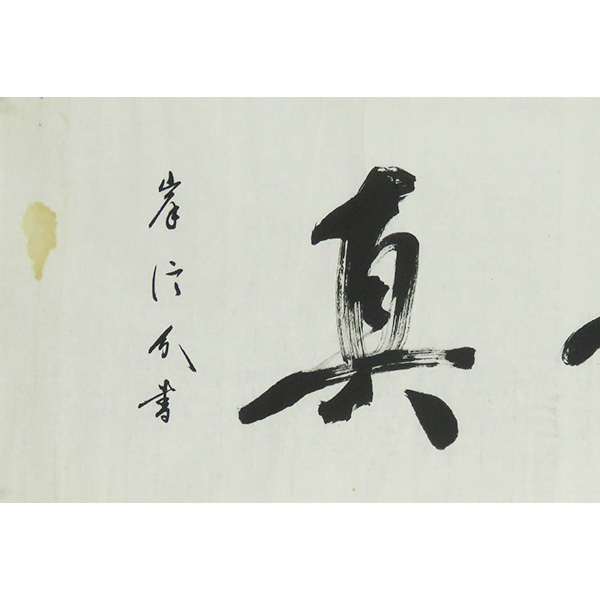 真
岸信介書